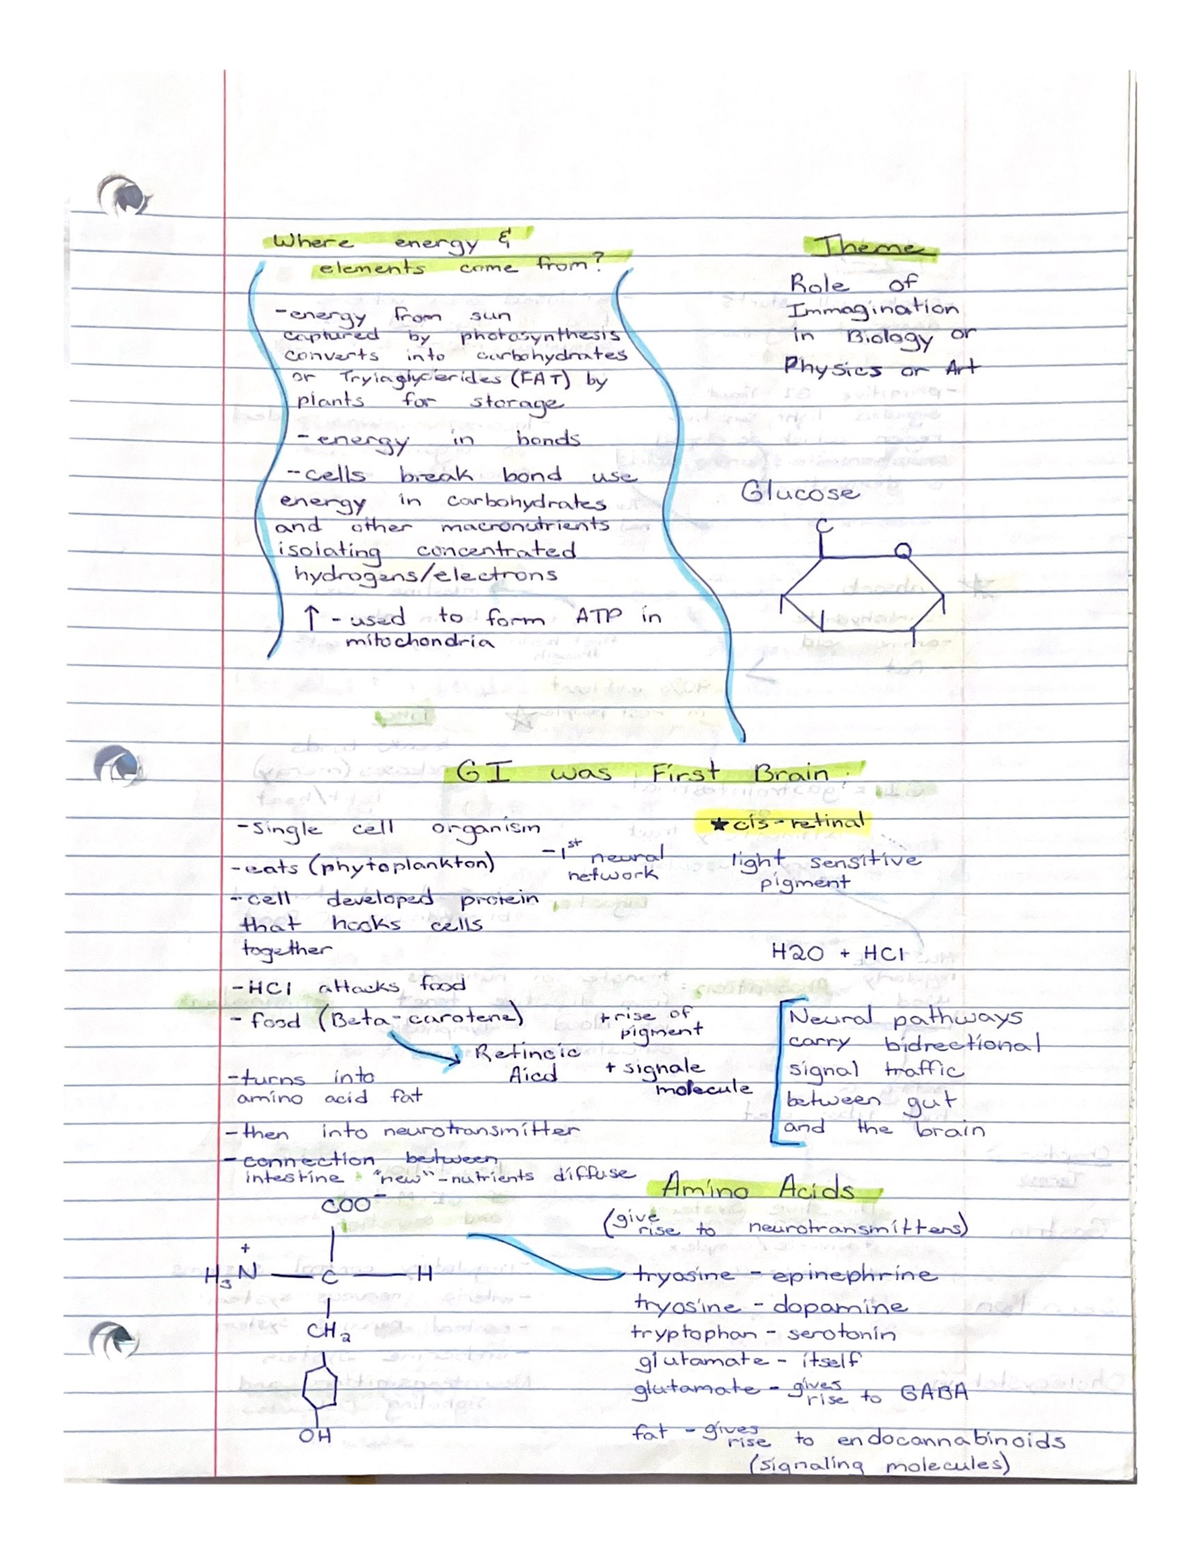 Where energy &
elements come from?
-energy from sun
captured by photosynthesis
converts into carbohydrates
or Tryiaglycerides (FAT) by
plants for storage
-energy in bonds
-cells break bond use
energy in carbohydrates
and other macronutrients
isolating concentrated
hydrogens/electrons
↑ - used to form ATP in
mitochondria
Theme
Role of
Immagination
in Biology or
Physics or Art
Glucose
C
O
GI was First Brain
-single cell organism
-eats (phytoplankton)
-1st neural
network
-cell developed protein
that hooks cells
together
-HCl attacks food
- food (Beta-carotene)
Retincic
Aicd
+rise of
pigment
+ signale
molecule
-turns into
amino acid fat
-then into neurotransmitter
-connection between
intestine "new"-nutrients diffuse
★cis-retinal
light sensitive
pigment
H2O + HCl
Neural pathways
carry bidrectional
signal traffic
between gut
and the brain
COO⁻
H₃N⁺ — C — H
CH₂
OH
Amino Acids
(give rise to neurotransmitters)
tryosine - epinephrine
tryosine - dopamine
tryptophan - serotonin
glutamate - itself
glutamate - gives rise to GABA
fat - gives rise to endocannabinoids
(signaling molecules)